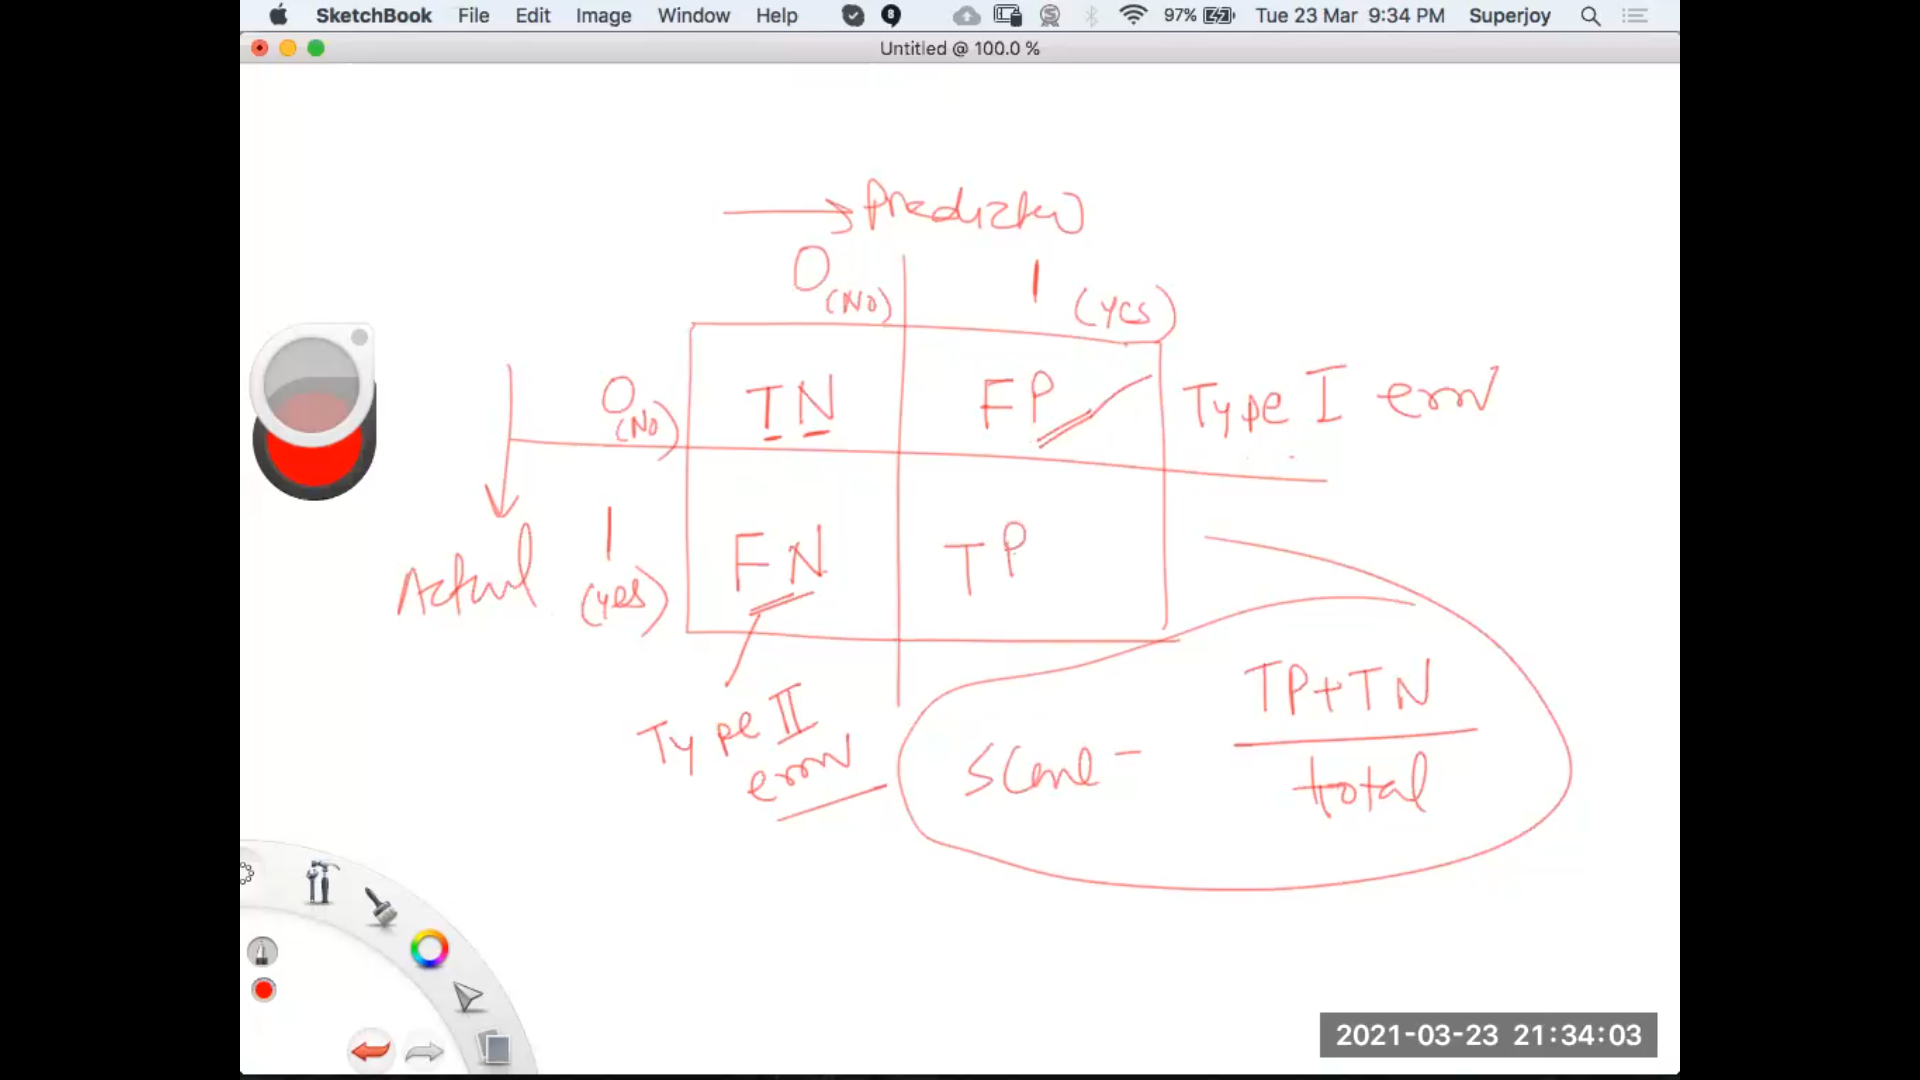 SketchBook File Edit Image Window Help 8 97% Tue 23 Mar 9:34 PM Superjoy
Untitled @ 100.0 %
Predicted
0 (No) 1 (Yes)
0 (No) TN FP Type I error
Actual 1 (Yes) FN TP
Type II error
Score - TP+TN
total
2021-03-23 21:34:03